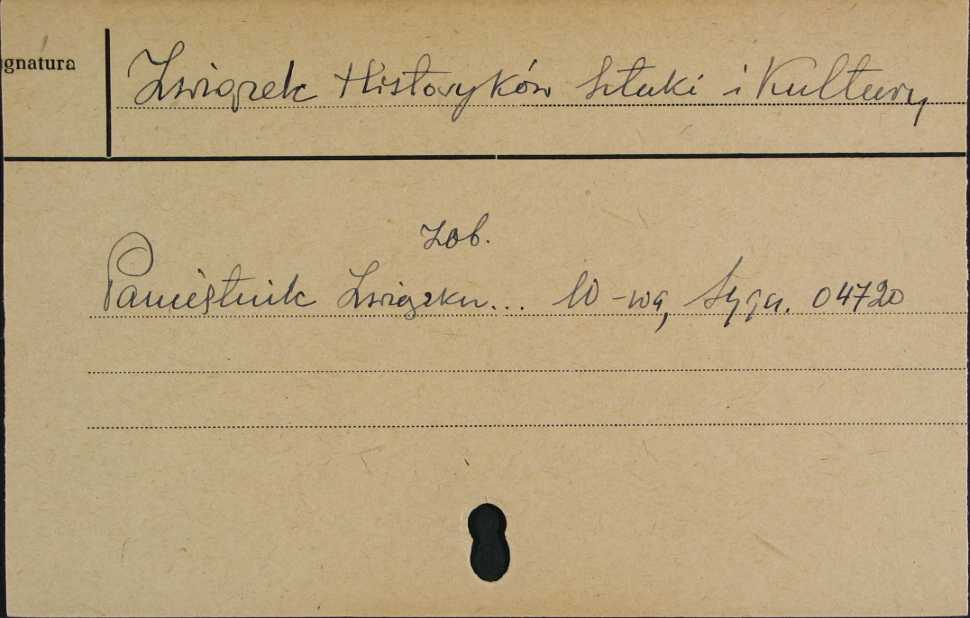 ignatura
Związek Historyków Sztuki i Kultury
Zob.
Pamiętnik Związku... W-wa, Sygn. 04720